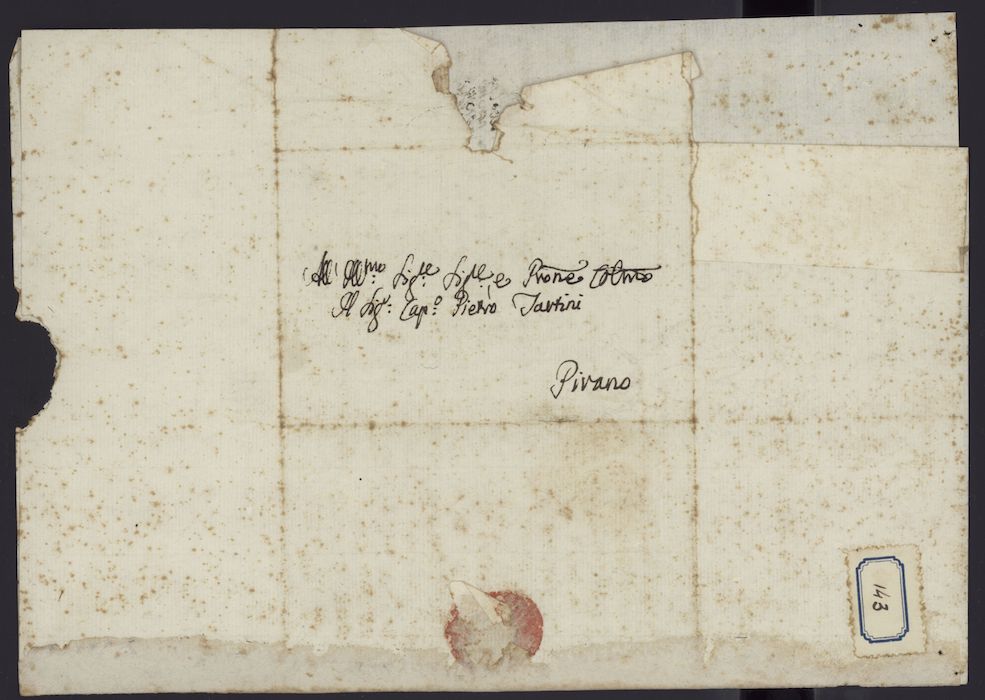 All' Ill.mo Sig.re Sig.re e Prone Colmo
Il Sig.r Cap.o Pietro Tartini
Pirano
143